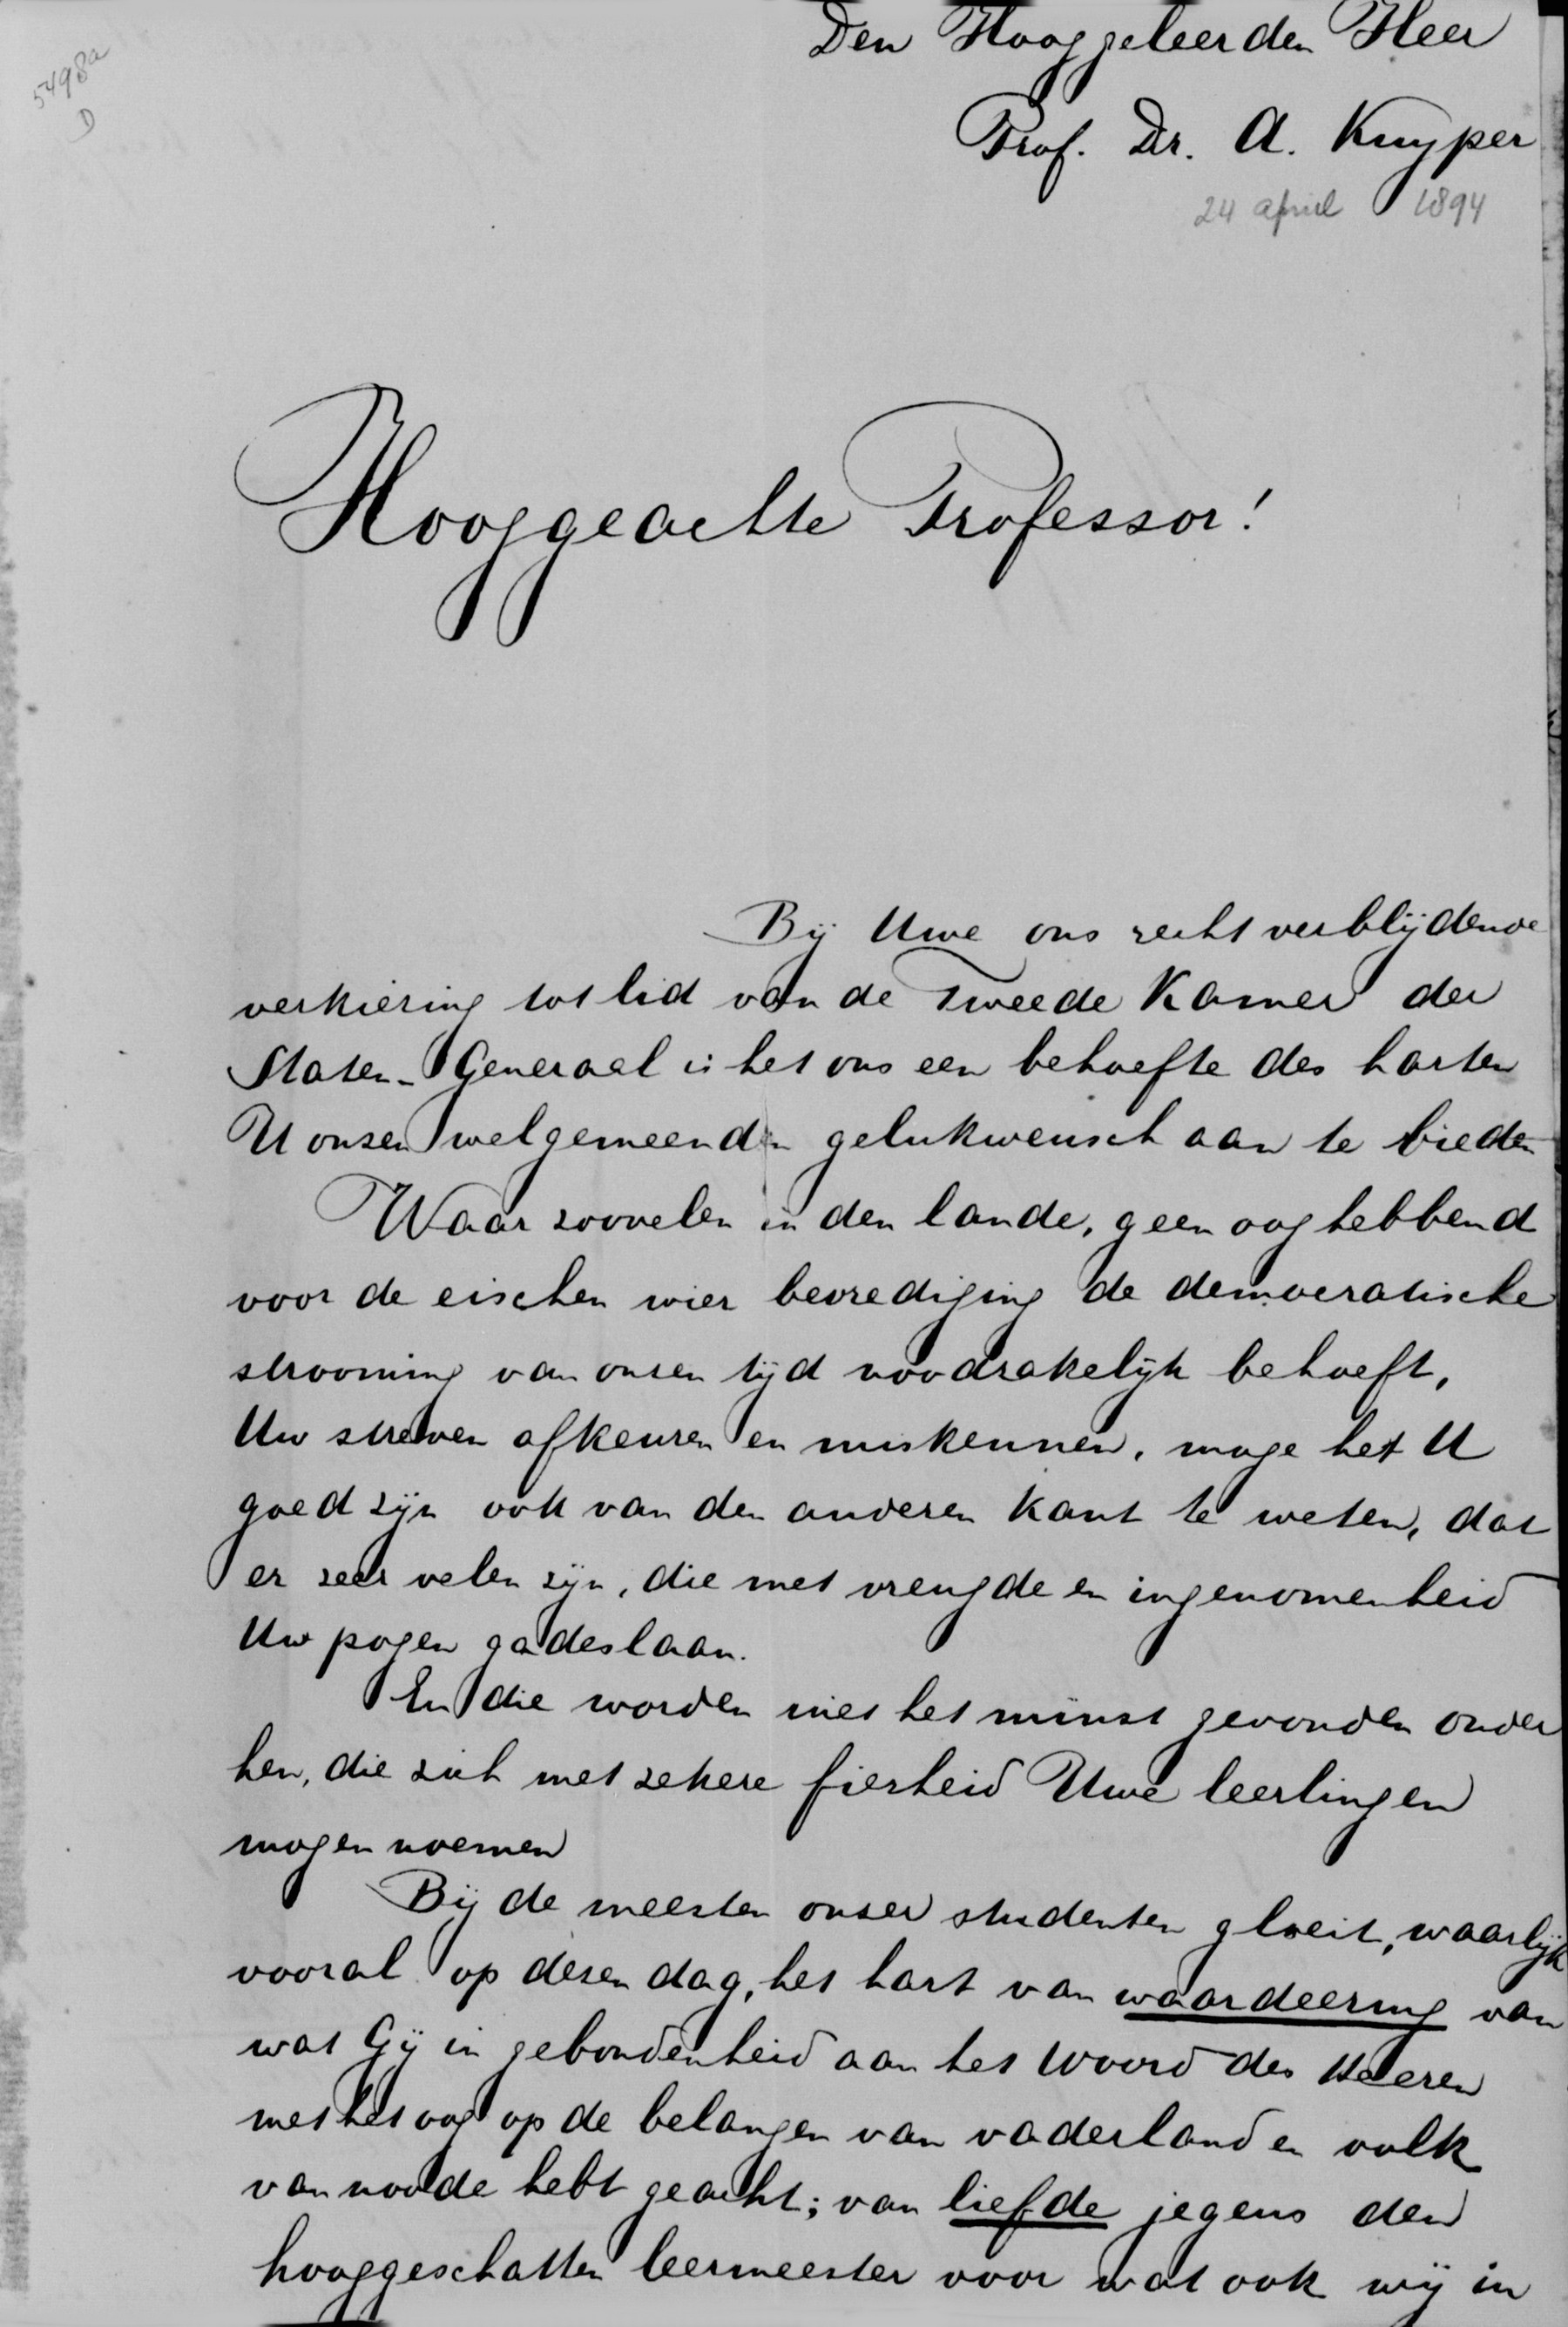 5498a
D
Den Hooggeleerden Heer
Prof. Dr. A. Kuyper
24 april 1894
Hooggeachte Professor!
Bij Uwe ons recht verblijdende
verkiezing tot lid van de Tweede Kamer der
Staten-Generaal is het ons een behoefte des harten
U onzen welgemeenden gelukwensch aan te bieden
Waar zoovelen in den lande, geen oog hebbend
voor de eischen wier bevrediging de democratische
strooming van onzen tijd noodzakelijk behoeft,
Uw streven afkeuren en miskennen, moge het U
goed zijn ook van den anderen kant te weten, dat
er zeer velen zijn, die met vreugde en ingenomenheid
Uw pogen gadeslaan.
En die worden niet het minst gevonden onder
hen, die zich met zekere fierheid Uwe leerlingen
mogen noemen
Bij de meesten onzer studenten gloeit, waarlijk
vooral op dezen dag, het hart van waardeering van
wat Gij in gebondenheid aan het Woord des Heeren
met het oog op de belangen van vaderland en volk
van noode hebt geacht; van liefde jegens den
hooggeschatten leermeester voor wat ook wij in